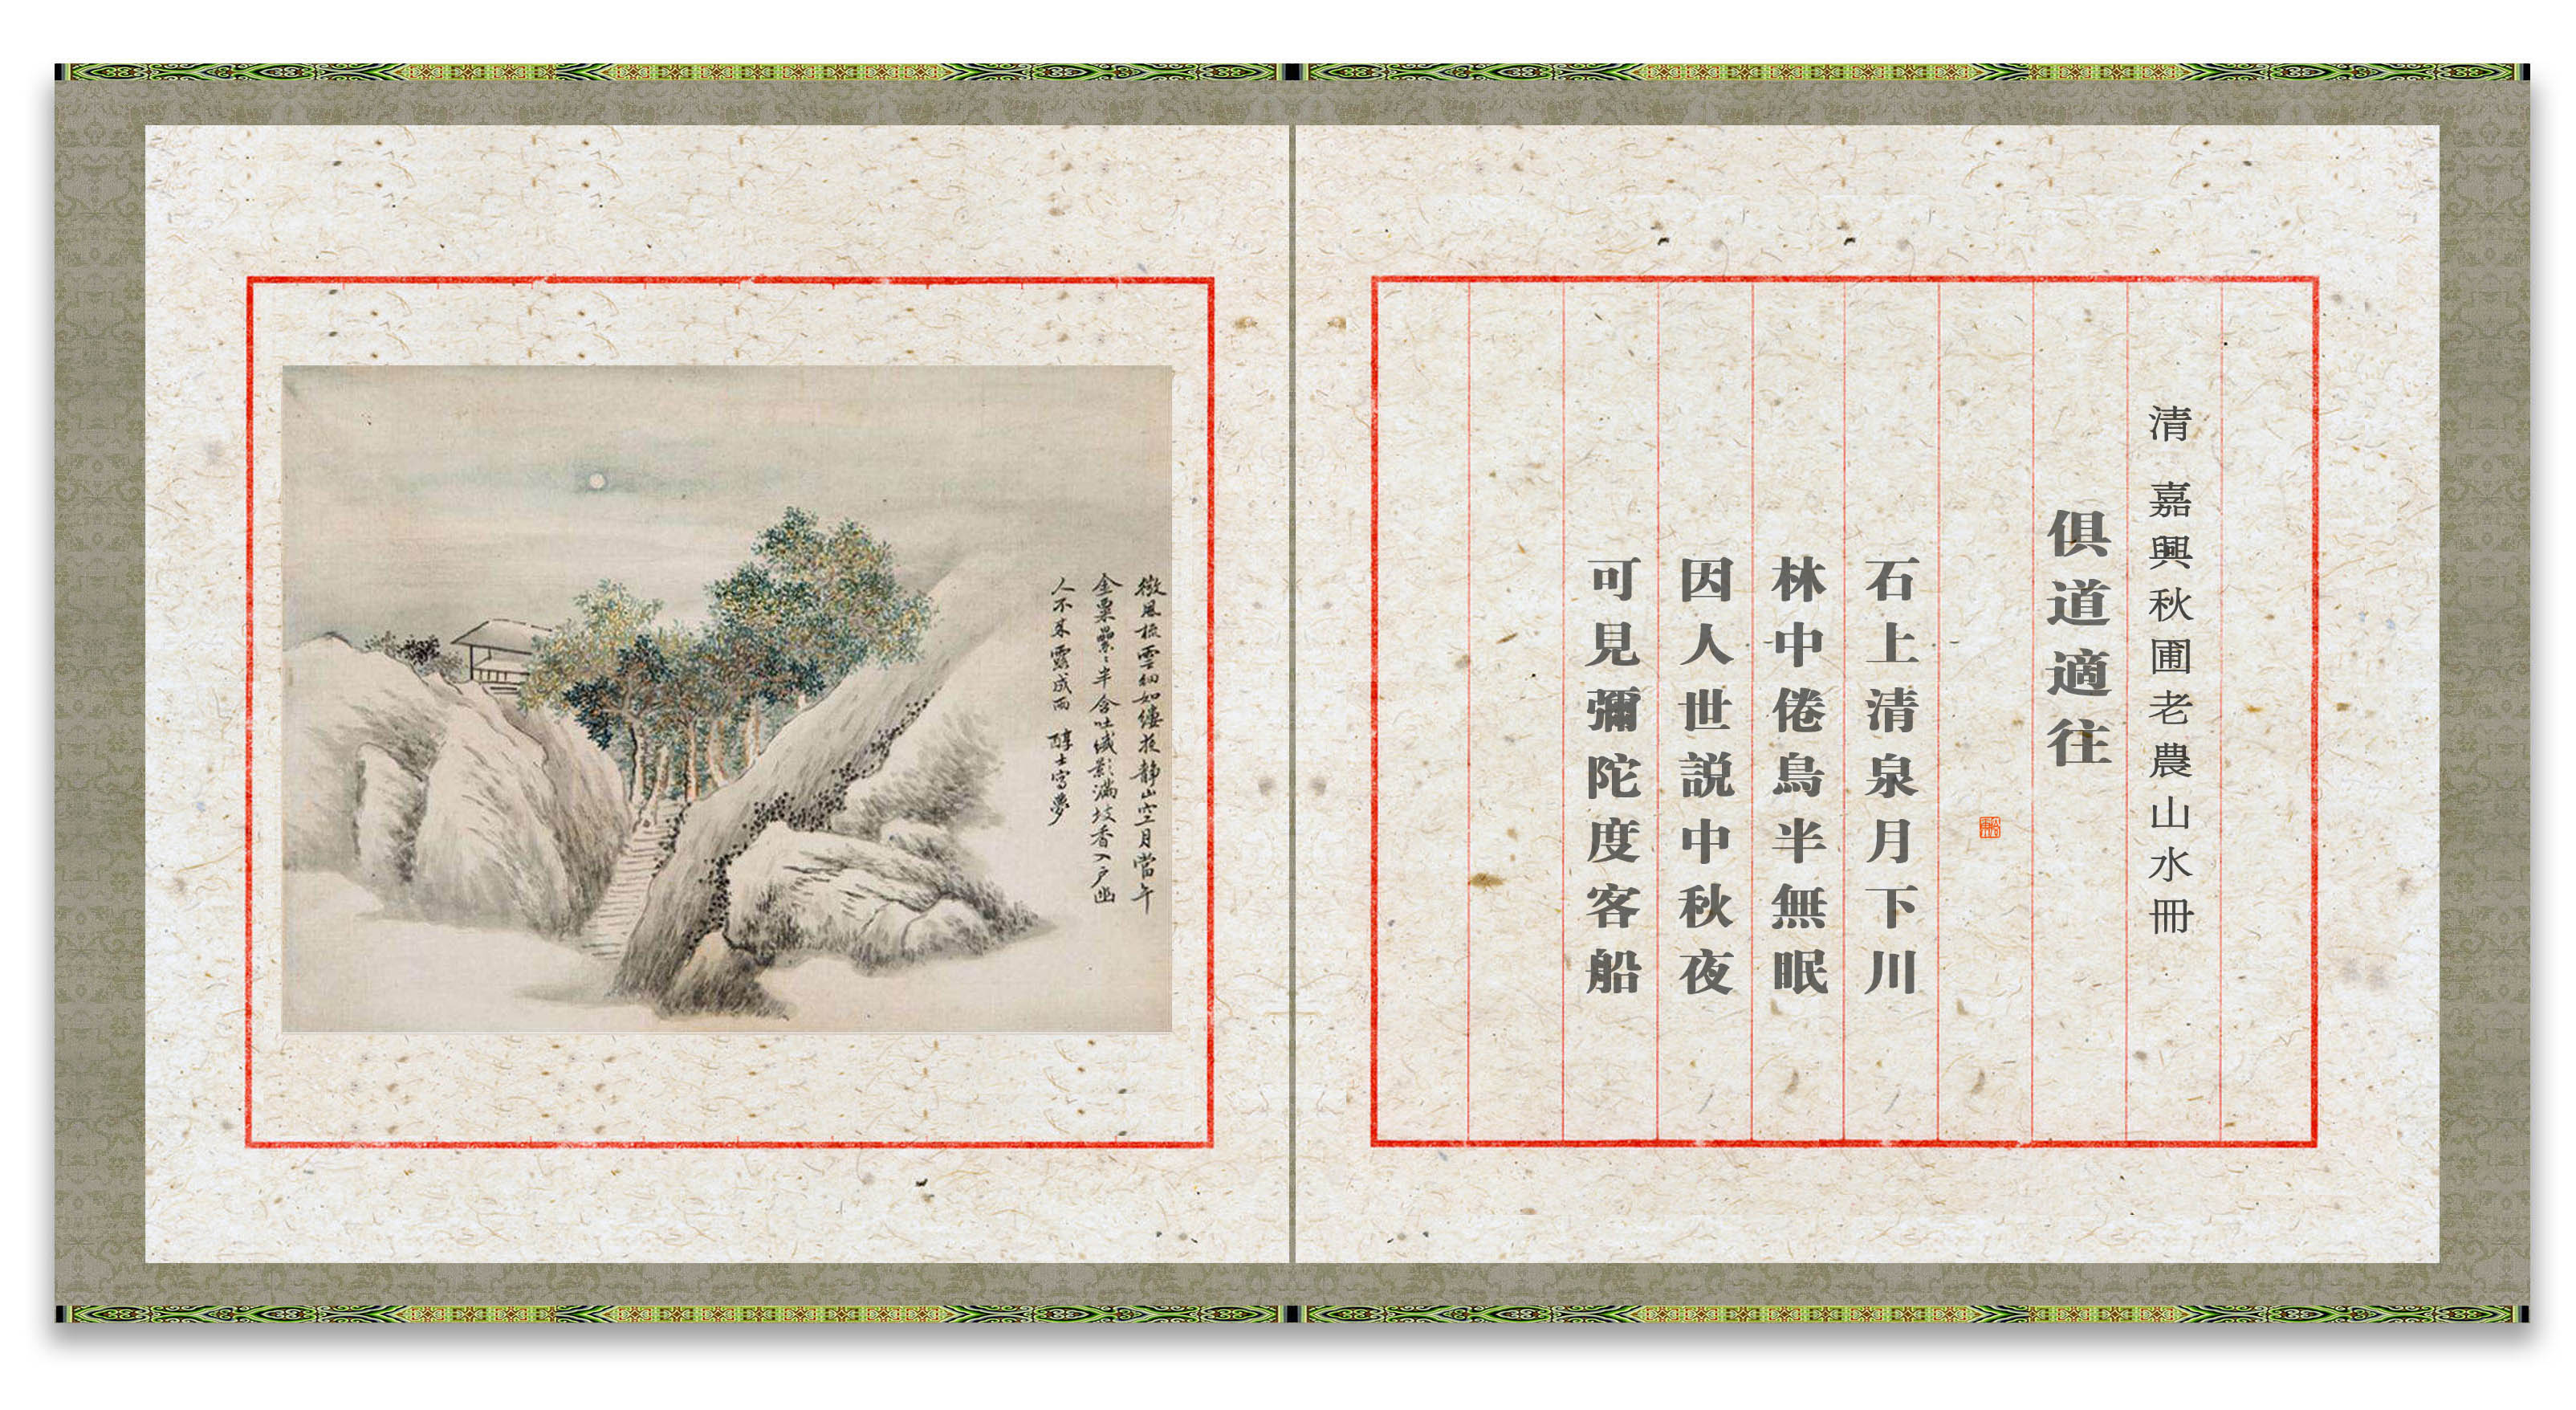 清 嘉興秋圃老農山水冊
俱道適往
石上清泉月下川
林中倦鳥半無眠
因人世説中秋夜
可見彌陀度客船
微風梳雲細如縷夜靜山空月當午
金粟纍纍半含吐濃影滿坡香入戶幽
人不來露成雨 醇士寫夢